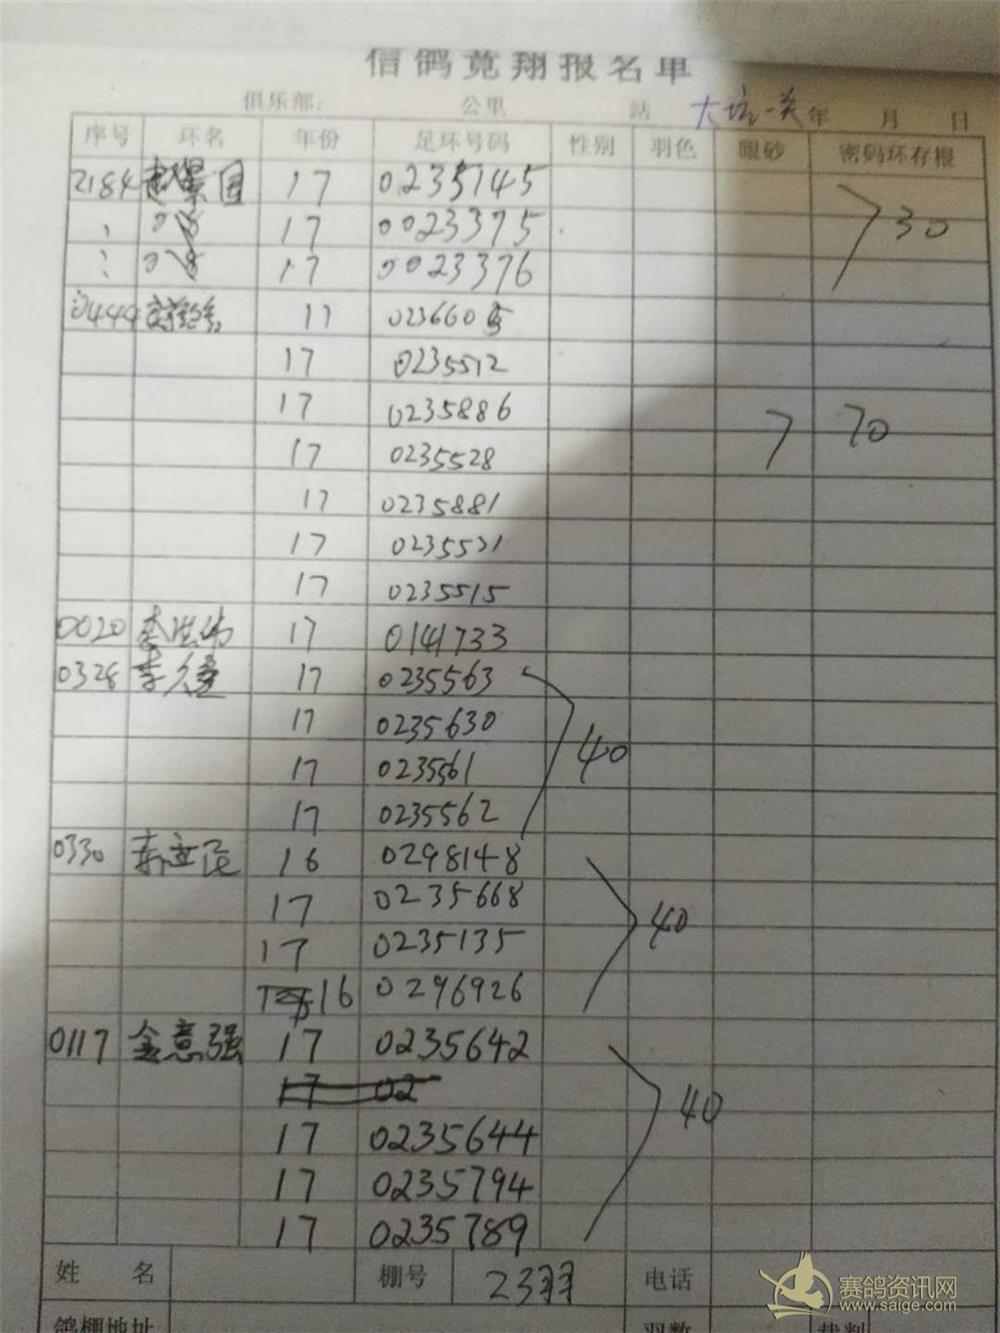 信鸽竞翔报名单
俱乐部: 公里 站 大坑一关 年 月 日
序号 环名 年份 足环号码 性别 羽色 眼砂 密码环存根
2184 赵景国 17 0235145
17 0023375 30
17 0023376
0449 17 0236605
17 0235512
17 0235886 70
17 0235528
17 0235881
17 0235521
17 0235515
0020 李洪伟 17 0141733
0328 17 0235563
17 0235630
17 0235561 40
17 0235562
0330 16 0298148
17 0235668
17 0235135 40
16 0296926
0117 金意强 17 0235642
17 02
17 0235644 40
17 0235794
17 0235789
姓 名 棚号 23羽 电话
鸽棚地址 羽数 裁判
赛鸽资讯网
www.saige.com